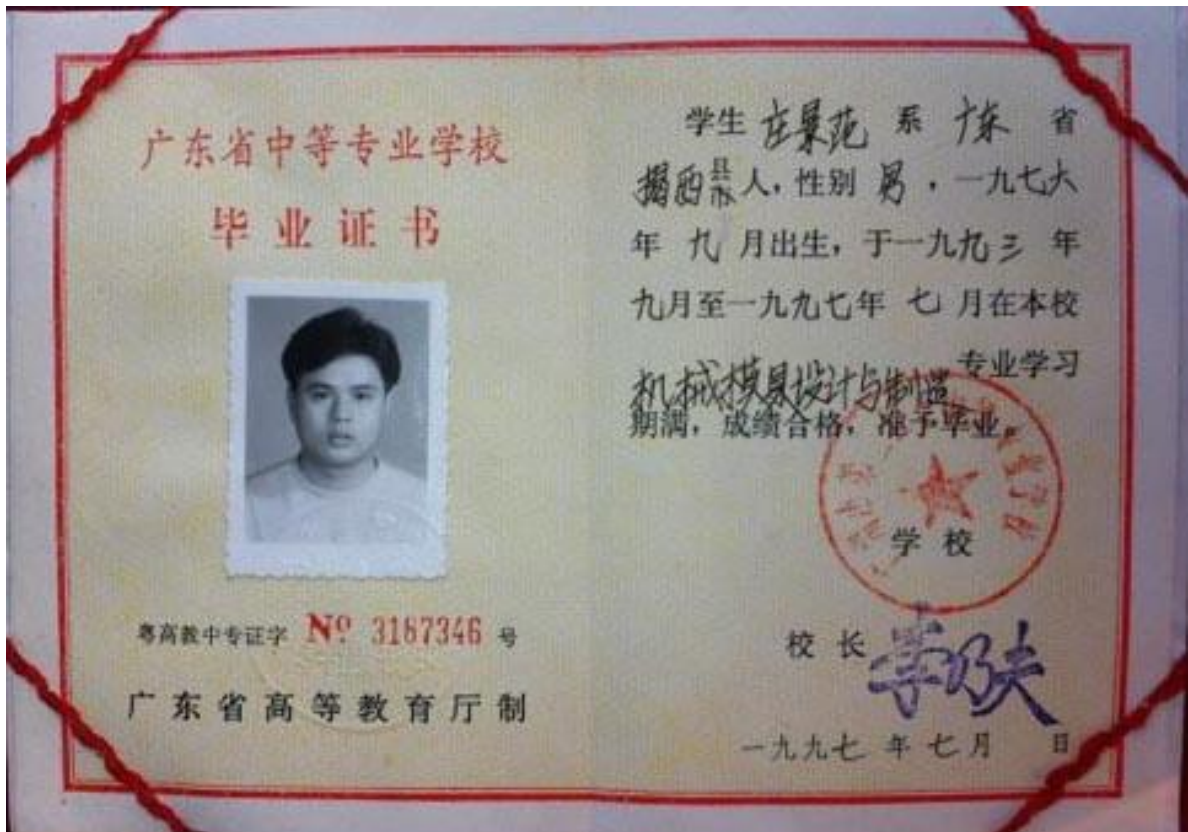 广东省中等专业学校
毕业证书
粤高教中专证字 № 3187346 号
广东省高等教育厅制
学生 庄景范 系 广东 省
揭西县市人，性别 男，一九七六
年 九 月出生，于一九九三 年
九月至一九九七年 七 月在本校
机械模具设计与制造 专业学习
期满，成绩合格，准予毕业。
学校
校长 李乃夫
一九九七 年 七 月 日